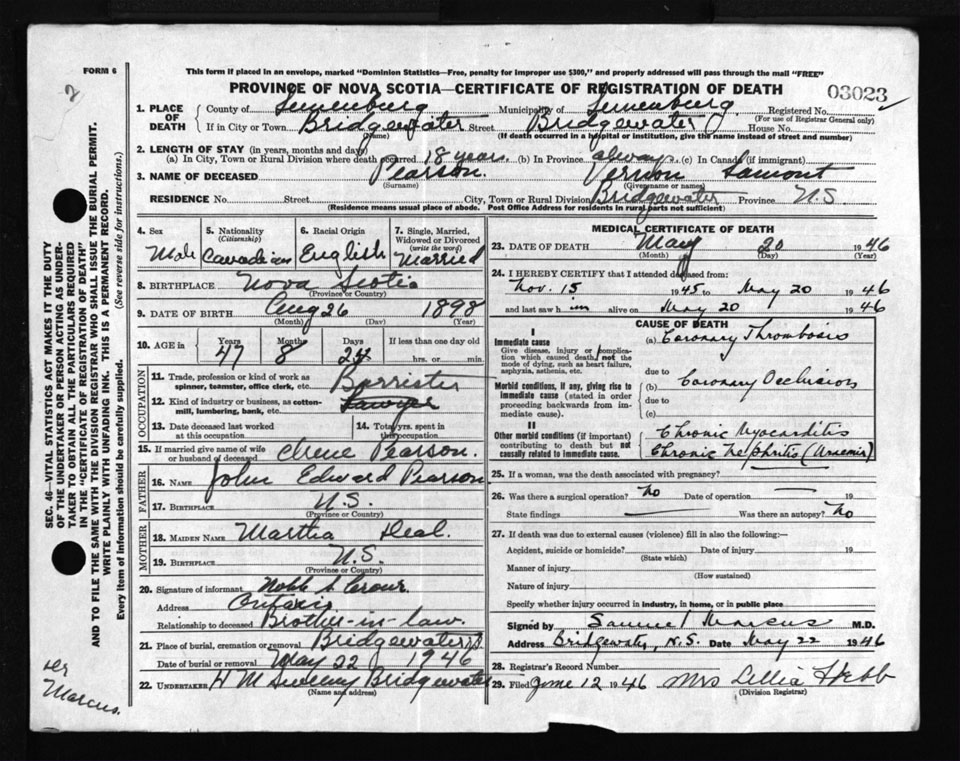 FORM 6
This form if placed in an envelope, marked "Dominion Statistics—Free, penalty for improper use $300," and properly addressed will pass through the mail "FREE"
2
PROVINCE OF NOVA SCOTIA—CERTIFICATE OF REGISTRATION OF DEATH
03023
1. PLACE OF DEATH
County of Lunenburg Municipality of Lunenburg Registered No.
(For use of Registrar General only)
If in City or Town Bridgewater Street Bridgewater House No.
(Name) (If death occurred in a hospital or institution, give the name instead of street and number)
2. LENGTH OF STAY (in years, months and days)
(a) In City, Town or Rural Division where death occurred 18 years (b) In Province always (c) In Canada (if immigrant)
3. NAME OF DECEASED Pearson. Vernon Lamont
(Surname) (Given name or names)
RESIDENCE No. Street City, Town or Rural Division Bridgewater Province N.S.
(Residence means usual place of abode. Post Office Address for residents in rural parts not sufficient)
4. Sex Male
5. Nationality (Citizenship) Canadian
6. Racial Origin English
7. Single, Married, Widowed or Divorced (write the word) Married
8. BIRTHPLACE Nova Scotia
(Province or Country)
9. DATE OF BIRTH Aug 26 1898
(Month) (Day) (Year)
10. AGE in Years Months Days If less than one day old
47 8 24 hrs. or min.
OCCUPATION
11. Trade, profession or kind of work as spinner, teamster, office clerk, etc. Barrister
12. Kind of industry or business, as cotton-mill, lumbering, bank, etc. Lawyer
13. Date deceased last worked at this occupation
14. Total yrs. spent in this occupation
15. If married give name of wife or husband of deceased Irene Pearson.
FATHER
16. Name John Edward Pearson
17. Birthplace N.S.
(Province or Country)
MOTHER
18. Maiden Name Martha Deal.
19. Birthplace N.S.
(Province or Country)
20. Signature of informant
Address Ontario
Relationship to deceased Brother-in-law.
21. Place of burial, cremation or removal Bridgewater N.S.
Date of burial or removal May 22 1946
22. UNDERTAKER H M Sweeny Bridgewater
(Name and address)
MEDICAL CERTIFICATE OF DEATH
23. DATE OF DEATH May 20 1946
(Month) (Day) (Year)
24. I HEREBY CERTIFY that I attended deceased from:
Nov. 15 1945 to May 20 1946
and last saw him alive on May 20 1946
CAUSE OF DEATH
I
Immediate cause
Give disease, injury or complication which caused death, not the mode of dying, such as heart failure, asphyxia, asthenia, etc.
(a) Coronary Thrombosis
due to
Morbid conditions, if any, giving rise to immediate cause (stated in order proceeding backwards from immediate cause).
(b) Coronary Occlusion
due to
(c)
II
Other morbid conditions (if important) contributing to death but not causally related to immediate cause.
Chronic Myocarditis
Chronic Nephritis
25. If a woman, was the death associated with pregnancy?
26. Was there a surgical operation? No Date of operation 19
State findings Was there an autopsy? No
27. If death was due to external causes (violence) fill in also the following:—
Accident, suicide or homicide? Date of injury 19
(State which)
Manner of injury
(How sustained)
Nature of injury
Specify whether injury occurred in industry, in home, or in public place
Signed by Samuel Marcus M.D.
Address Bridgewater, N.S. Date May 22 1946
28. Registrar's Record Number
29. Filed June 12 1946 Mrs Lellia Hebb
(Division Registrar)
SEC. 46—VITAL STATISTICS ACT MAKES IT THE DUTY
OF THE UNDERTAKER OR PERSON ACTING AS UNDER-
TAKER TO OBTAIN ALL THE PARTICULARS REQUIRED
IN THE "CERTIFICATE OF REGISTRATION OF DEATH"
AND TO FILE THE SAME WITH THE DIVISION REGISTRAR WHO SHALL ISSUE THE BURIAL PERMIT.
WRITE PLAINLY WITH UNFADING INK. THIS IS A PERMANENT RECORD.
Every item of information should be carefully supplied. (See reverse side for instructions.)
Dr
Marcus.